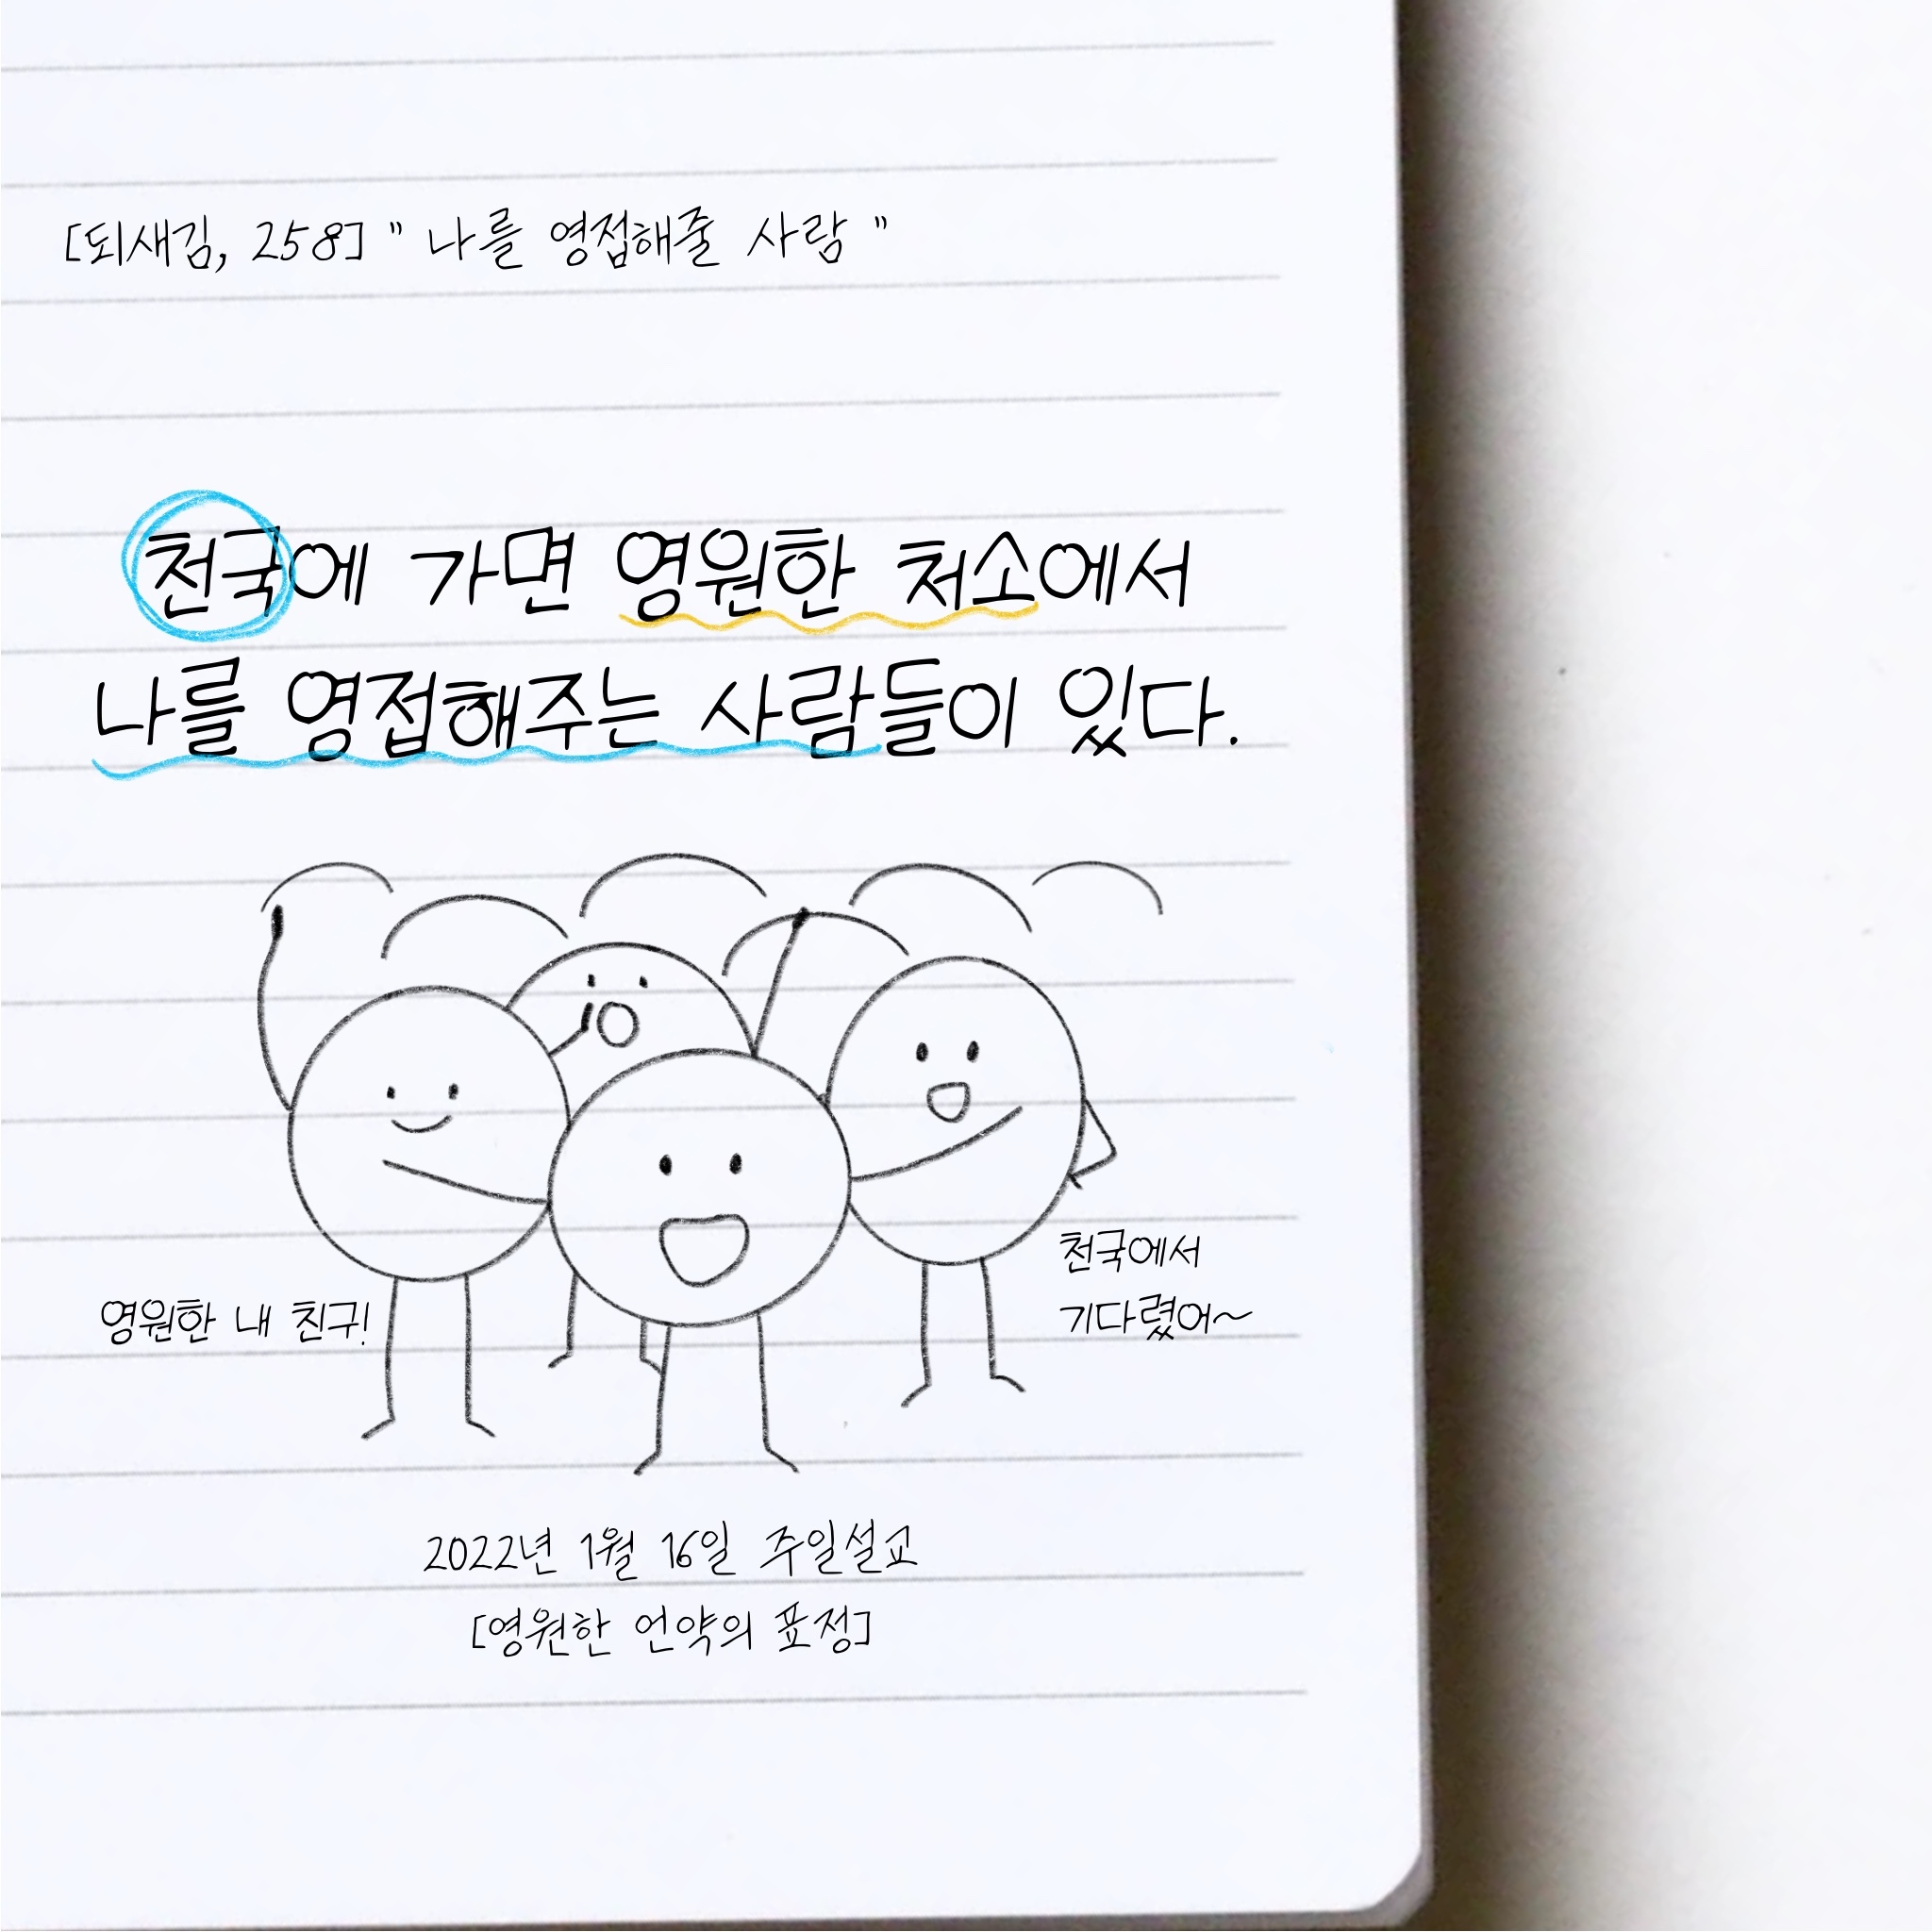 [되새김, 258] " 나를 영접해줄 사람 "
천국에 가면 영원한 처소에서
나를 영접해주는 사람들이 있다.
영원한 내 친구!
천국에서
기다렸어~
2022년 1월 16일 주일설교
[영원한 언약의 표정]